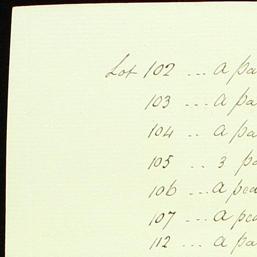 Lot 102 ... a pa
103 ... a pa
104 .. a pa
105 .. 3 pa
106 ... a pea
107 ... a pea
112 ... a pa